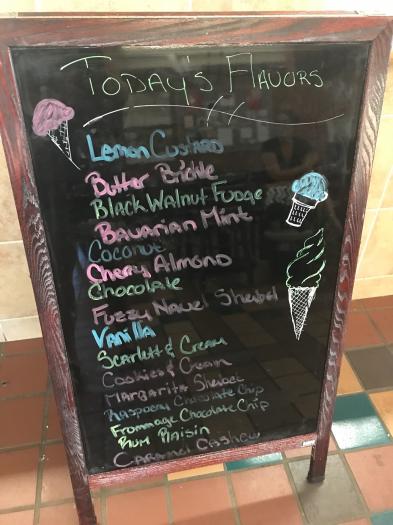 Today's Flavors
Lemon Custard
Butter Brickle
Black Walnut Fudge
Bavarian Mint
Coconut
Cherry Almond
Chocolate
Fuzzy Navel Sherbet
Vanilla
Scarlett & Cream
Cookies & Cream
Margarita Sherbet
Raspberry Chocolate Chip
Frommage Chocolate Chip
Rum Plaisin
Caramel Cashew